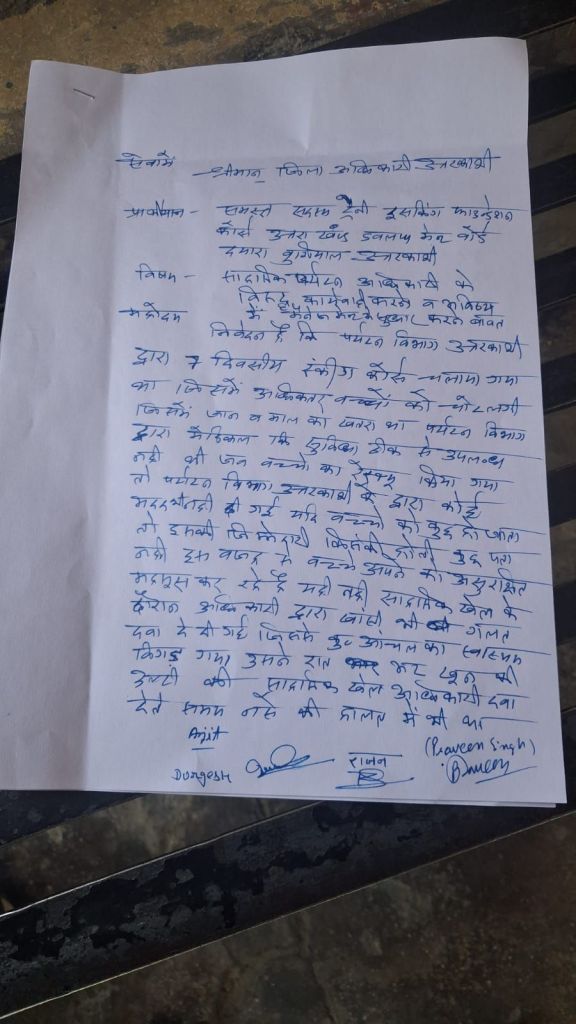 सेवामें
श्रीमान जिला अधिकारी उत्तरकाशी
प्रार्थीगण - समस्त ट्रेनी इसकिंग फाउन्डेशन
कोर्स उतरा खंण्ड डवलपमेन्ट वोर्ड
दयारा बुग्याल उत्तरकाशी
विषय - साहासिक पर्यटन अधिकारी के
विरुद्ध कार्यवाही करने व भविष्य
महोदय में मैनेजमेन्ट में सुधार करने बावत
निवेदन है कि पर्यटन विभाग उत्तरकाशी
द्वारा 7 दिवसीय स्कीइंग कोर्स चलाया गया
था जिसमें अधिकतर बच्चों को चोट लगी
जिसमें जान व माल को खतरा था पर्यटन विभाग
द्वारा मेडिकल कि सुविधा ठीक से उपलब्ध
नही थी जब बच्चो का रेस्क्यू किया गया
तो पर्यटन विभाग उत्तरकाशी के द्वारा कोई
मदद नही दी गई यदि बच्चो को कुछ हो जाता
तो इसकी जिम्मेदारी किसकी होती कुछ पता
नही इस वजह से बच्चे अपने को असुरक्षित
महसुस कर रहे है यही नही साहासिक खेल के
दौरान अधिकारी द्वारा खांसी की गलत
दवा दे दी गई जिससे कु० आंचल का स्वास्थ्य
बिगड़ गया उसने रात भर खून की
उल्टी की साहासिक खेल अधिकारी दवा
देते समय नशे की हालत में भी था
Anjit
Durgesh
राजन
(Praveen Singh)
Praveen